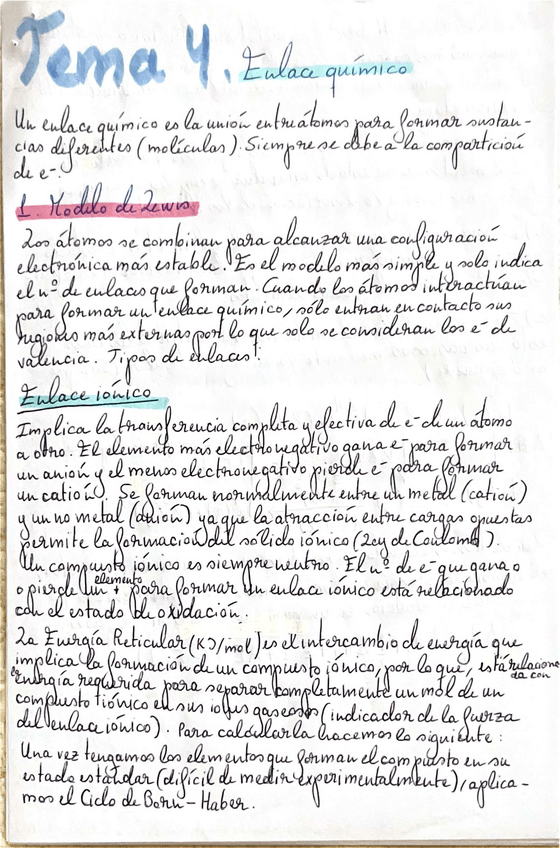 Tema 4. Enlace químico
Un enlace químico es la unión entre átomos para formar sustan-
cias diferentes (moléculas). Siempre se debe a la compartición
de e-.
1. Modelo de Lewis
Los átomos se combinan para alcanzar una configuración
electrónica más estable. Es el modelo más simple y solo indica
el nº de enlaces que forman. Cuando los átomos interactúan
para formar un enlace químico, sólo entran en contacto sus
regiones más externas por lo que solo se consideran los e- de
valencia. Tipos de enlaces:
Enlace iónico
Implica la transferencia completa y efectiva de e- de un átomo
a otro. El elemento más electronegativo gana e- para formar
un anión y el menos electronegativo pierde e- para formar
un catión. Se forman normalmente entre un metal (catión)
y un no metal (anión) ya que la atracción entre cargas opuestas
permite la formación del sólido iónico (Ley de Coulomb).
Un compuesto iónico es siempre neutro. El nº de e- que gana o
o pierde un elemento para formar un enlace iónico está relacionado
con el estado de oxidación.
La Energía Reticular (KJ/mol) es el intercambio de energía que
implica la formación de un compuesto iónico, por lo que, está relaciona
da con
energía requerida para separar completamente un mol de un
compuesto iónico en sus iones gaseosos (indicador de la fuerza
del enlace iónico). Para calcularla hacemos lo siguiente:
Una vez tengamos los elementos que forman el compuesto en su
estado estándar (difícil de medir experimentalmente), aplica-
mos el Ciclo de Born-Haber.